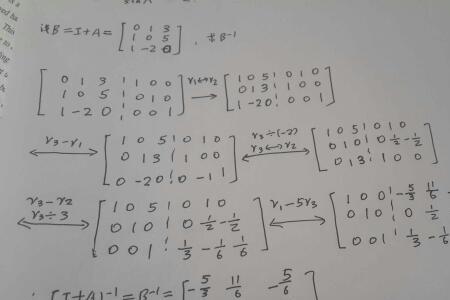 设B=I+A= [ 0 1 3 ; 1 0 5 ; 1 -2 0 ] , 求B⁻¹
[ 0 1 3 ¦ 1 0 0 ; 1 0 5 ¦ 0 1 0 ; 1 -2 0 ¦ 0 0 1 ] r₁↔r₂ → [ 1 0 5 ¦ 0 1 0 ; 0 1 3 ¦ 1 0 0 ; 1 -2 0 ¦ 0 0 1 ]
r₃-r₁ ↔ [ 1 0 5 ¦ 0 1 0 ; 0 1 3 ¦ 1 0 0 ; 0 -2 0 ¦ 0 -1 1 ] r₃÷(-2) r₃↔r₂ ↔ [ 1 0 5 ¦ 0 1 0 ; 0 1 0 ¦ 0 1/2 -1/2 ; 0 1 3 ¦ 1 0 0 ]
r₃-r₂ r₃÷3 ↔ [ 1 0 5 ¦ 0 1 0 ; 0 1 0 ¦ 0 1/2 -1/2 ; 0 0 1 ¦ 1/3 -1/6 1/6 ] r₁-5r₃ ↔ [ 1 0 0 ¦ -5/3 11/6 ; 0 1 0 ¦ 0 1/2 ; 0 0 1 ¦ 1/3 -1/6
[I+A]⁻¹=B⁻¹= [ -5/3 11/6 -5/6 ]